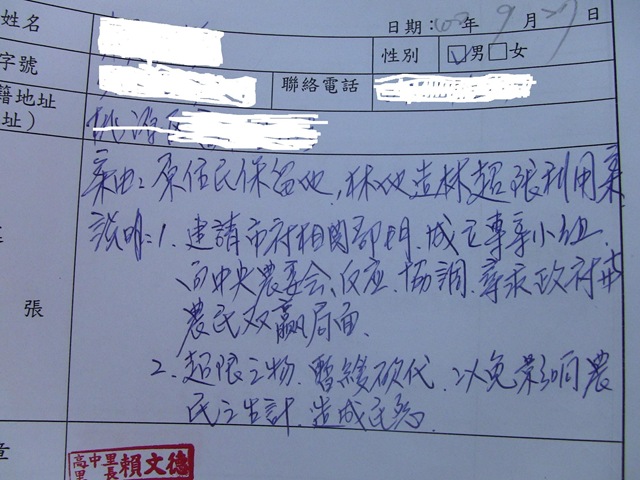 姓名
日期：102年9月27日
性別 ☑男□女
字號
聯絡電話
籍地址
址）
桃源區
案由：原住民保留地，林地造林超限利用案
說明：1. 建請市府相關部門，成立專案小組，
向中央農委会、反应、協調、尋求政府與
農民双贏局面。
張
2. 超限之物，暫緩砍伐，以免影响農
民之生計，造成民怨。
章
高中里里長 賴文德